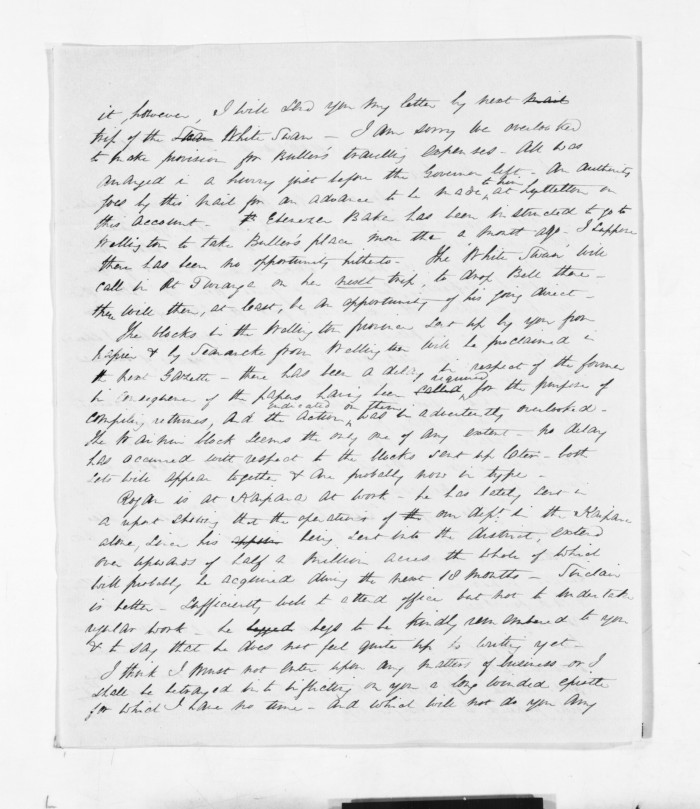 it, however, I will send you my letter by next mail
trip of the Swan White Swan – I am sorry we overlooked
to make provision for Buller's travelling expenses – All was
arranged in a hurry just before the Governor left – An authority
goes by this mail for an advance to be made to him at Lyttelton on
this account – Ebenezer Baker has been instructed to go to
Wellington to take Buller's place more than a month ago – I suppose
there has been no opportunity hitherto – The 'White Swan' will
call in at Turanga on her next trip, to drop Bell there –
there will then, at least, be an opportunity of his going direct –
The blocks in the Wellington province sent up by you from
Napier & by Searancke from Wellington will be proclaimed in
the next Gazette – there has been a delay in respect of the former
in consequence of the papers having been called required for the purpose of
compiling returns, and the action indicated on them was inadvertently overlooked –
The block seems the only one of any extent – no delay
has occurred with respect to the blocks sent up later – both
lots will appear together & are probably now in type –
Rogan is at Kaipara at work – he has lately sent in
a report showing that the operations of the our dept. in the Kaipara
alone, since his being sent into the district, extend
over upwards of half a million acres the whole of which
will probably be acquired during the next 18 months – Sinclair
is better – sufficiently well to attend office but not to undertake
regular work – he begged begs to be kindly remembered to you
& to say that he does not feel quite up to writing yet –
I think I must not enter upon any matters of business or I
shall be betrayed into inflicting on you a long winded epistle
for which I have no time – and which will not do you any